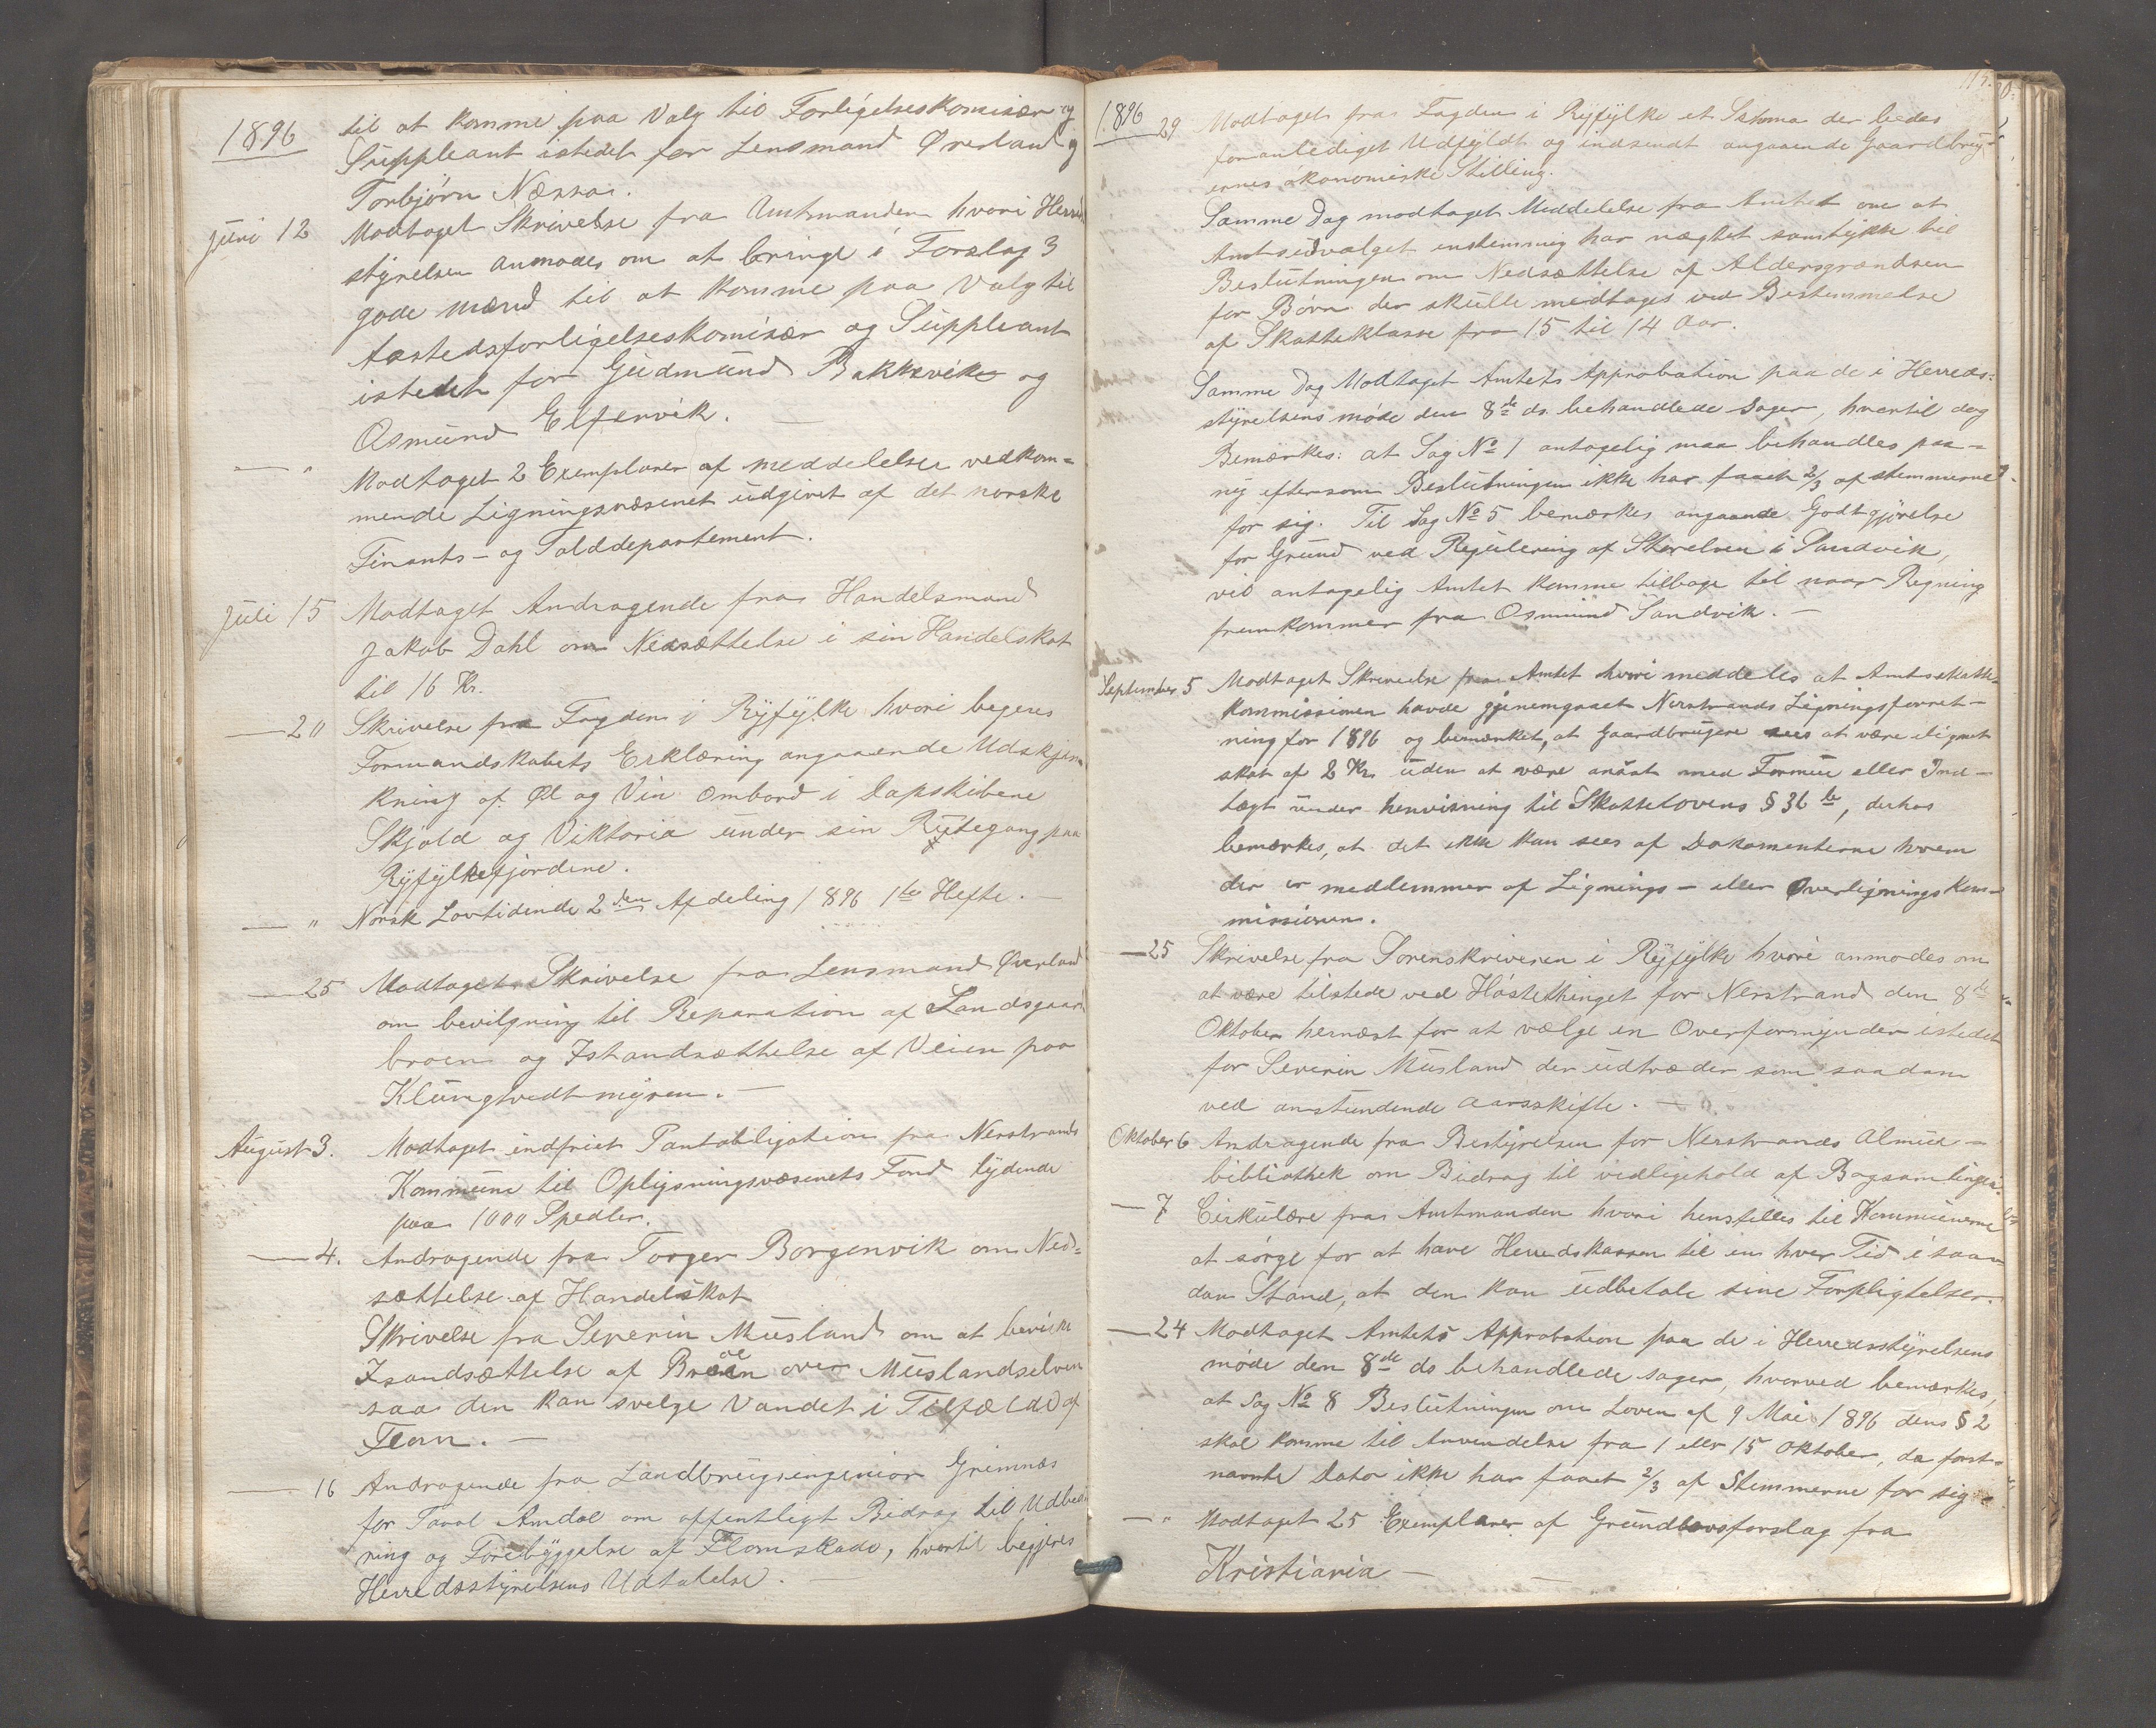 1896
til at komme paa Valg til Forligelseskomisær og
Suppleant istedet for Lensmand Øverland og
Torbjörn Næssa.
Juni 12 Modtaget Skrivelse fra Amtmanden hvori Herreds
styrelsen anmodes om at bringe i Forslag 3
gode mænd til at komme paa Valg til
Aastedsforligelseskomisær og Suppleant
istedet for Gudmund Bakkevik og
Osmund Elfervik.
— " Modtaget 2 Exemplarer af meddelelser vedkom-
mende Ligningsvæsenet udgivet af det norske
Finants- og Tolddepartement.
Juli 15 Modtaget Andragende fra Handelsmand
Jakob Dahl om Nedsættelse i sin Handelskat
til 16 Kr.
— 20 Skrivelse fra Fogden i Ryfylke hvori begeres
Formandskabets Erklæring angaaende Udskjæn-
kning af Øl og Vin ombord i Dapskibene
Skjold og Viktoria under sin Rutegang paa
Ryfylkefjordene.
— " Norsk Lovtidende 2den Afdeling 1896 1ste Hefte. —
— 25 Modtaget Skrivelse fra Lensmand Øverland
om bevilgning til Reparation af Landsgaard
broen og Istandsættelse af Veien paa
Klungtvedtmyren. —
August 3. Modtaget indfriet Pantobligation fra Nerstrands
Kommune til Oplysningsvæsenets Fond lydende
paa 1000 Spedler.
— 4. Andragende fra Torger Borgenvik om Ned-
sættelse af Handelskat
Skrivelse fra Severin Musland om at bevirke
Isandsættelse af Broen over Muslandselven
saa den kan svelge Vandet i Tilfælde af
Flom. —
— 16 Andragende fra Landbrugsengeniør Grimnæs
for Paul Amdal om offentligt Bidrag til Udbed
ring og Forebyggelse af Flomskade, hvortil begjæres
Herredsstyrelsens Udtalelse. —
115.
1896
29 Modtaget fra Fogden i Ryfylke et Skema der bedes
foranlediget Udfyldt og indsendt angaaende Gaardbrug-
ernes økonomiske Stilling.
Samme Dag modtaget Meddelelse fra Amtet om at
Amtsudvalget enstemmig har nægtet samtykke til
Beslutningen om Nedsættelse af Aldersgrændsen
for Børn der skulle medtages ved Bestemmelse
af Skatteklasse fra 15 til 14 Aar.
Samme Dag Modtaget Amtets Approbation paa de i Herreds:
styrelsens møde den 8de ds. behandlede Sager, hvortil dog
Bemærkes: at Sag No 1 antagelig maa behandles paa-
ny eftersom Beslutningen ikke har faaet 2/3 af stemmerne
for sig. Til Sag No 5 bemærkes angaaende Godtgjörelse
for Grund ved Regulering af Storelven i Sandvik,
vil antagelig Amtet komme tilbage til naar Regning
fremkommer fra Osmund Sandvik. —
September 5 Modtaget Skrivelse fra Amtet hvori meddeles at Amtsskatte-
kommissionen havde gjenemgaaet Nerstrands Ligningsforret-
ning for 1896 og bemærket, at Gaardbrugere sees at være ilignet
skat af 2 Kr. uden at være ansat med Formue eller Ind-
tægt under henvisning til Skattelovens § 36 , derhos
bemærkes, at det ikke kan sees af Dokumenterne hvem
der er medlemmer af Lignings- eller Overligningskom-
missionen.
— 25 Skrivelse fra Sorenskriveren i Ryfylke hvori anmodes om
at være tilstede ved Høstethinget for Nerstrand den 8de
Oktober hernæst for at vælge en Overformynder istedet
for Severin Musland der udtræder som saadan
ved anstundende Aarsskifte. —
Oktober 6 Andragende fra Bestyrelsen for Nerstrands Almue-
bibliothek om Bidrag til vedligehold af Bogsamlingen.
— 7 Cirkulære fra Amtmanden hvori henstilles til Kommunerne
at sörge for at have Herredskassen til en hver Tid i saa-
dan Stand, at den kan udbetale sine Forpligtelser.
— 24 Modtaget Amtets Approbation paa de i Herredsstyrelsens
møde den 8de ds behandlede sager, hvorved bemærkes,
at Sag No 8 Beslutningen om Loven af 9 Mai 1896 dens § 2
skal komme til Anvendelse fra 1 eller 15 Oktober, da først-
nævnte Dato ikke har faaet 2/3 af Stemmerne for sig
— " Modtaget 25 Exemplarer af Grundlovsforslag fra
Kristiania —